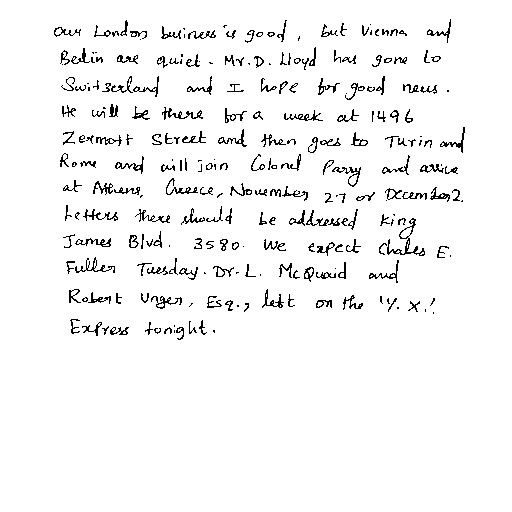 Our London business is good, but Vienna and
Berlin are quiet. Mr. D. Lloyd has gone to
Switzerland and I hope for good news.
He will be there for a week at 1496
Zermott Street and then goes to Turin and
Rome and will join Colonel Parry and arrive
at Athens, Greece, November 27 or December 2.
Letters there should be addressed King
James Blvd. 3580. We expect Chales E.
Fuller Tuesday. Dr. L. McQuaid and
Robert Unger, Esq., left on the 'Y. X.'
Express tonight.